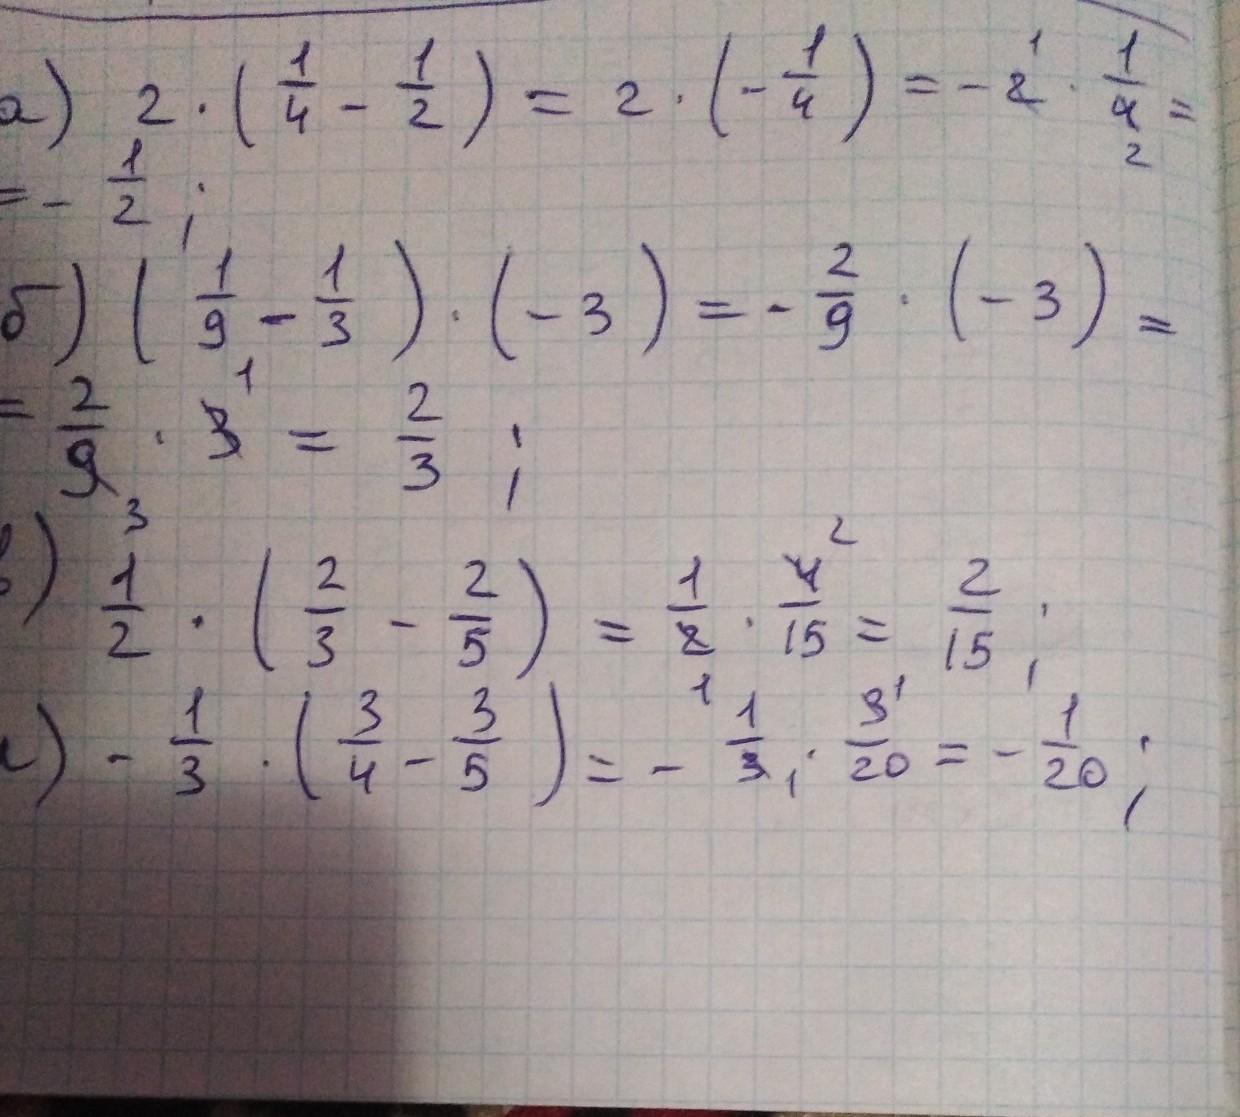 а) 2 · (1/4 - 1/2) = 2 · (-1/4) = -2 1 · 1/4 2 =
= - 1/2 ;
б) (1/9 - 1/3) · (-3) = - 2/9 · (-3) =
= 2/9 3 · 3 1 = 2/3 ;
в) 1/2 · (2/3 - 2/5) = 1/2 1 · 4 2/15 = 2/15 ;
) - 1/3 · (3/4 - 3/5) = - 1/3 1 · 3 1/20 = - 1/20 ;